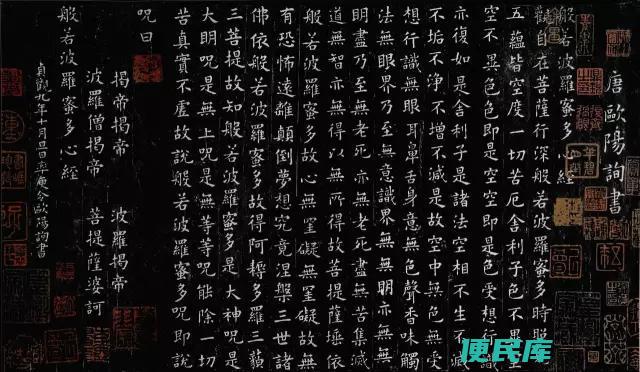 唐歐陽詢書
般若波羅蜜多心經
觀自在菩薩行深般若波羅蜜多時照見
五蘊皆空度一切苦厄舍利子色不異空
空不異色色即是空空即是色受想行識
亦復如是舍利子是諸法空相不生不滅
不垢不淨不增不減是故空中無色無受
想行識無眼耳鼻舌身意無色聲香味觸
法無眼界乃至無意識界無無明亦無無
明盡乃至無老死亦無老死盡無苦集滅
道無智亦無得以無所得故菩提薩埵依
般若波羅蜜多故心無罣礙無罣礙故無
有恐怖遠離顛倒夢想究竟涅槃三世諸
佛依般若波羅蜜多故得阿耨多羅三藐
三菩提故知般若波羅蜜多是大神呪是
大明呪是無上呪是無等等呪能除一切
苦真實不虛故說般若波羅蜜多呪即說
呪曰
揭帝揭帝 波羅揭帝
波羅僧揭帝 菩提薩婆訶
般若波羅蜜多心經
貞觀九年十月旦日率更令歐陽詢書
便民库